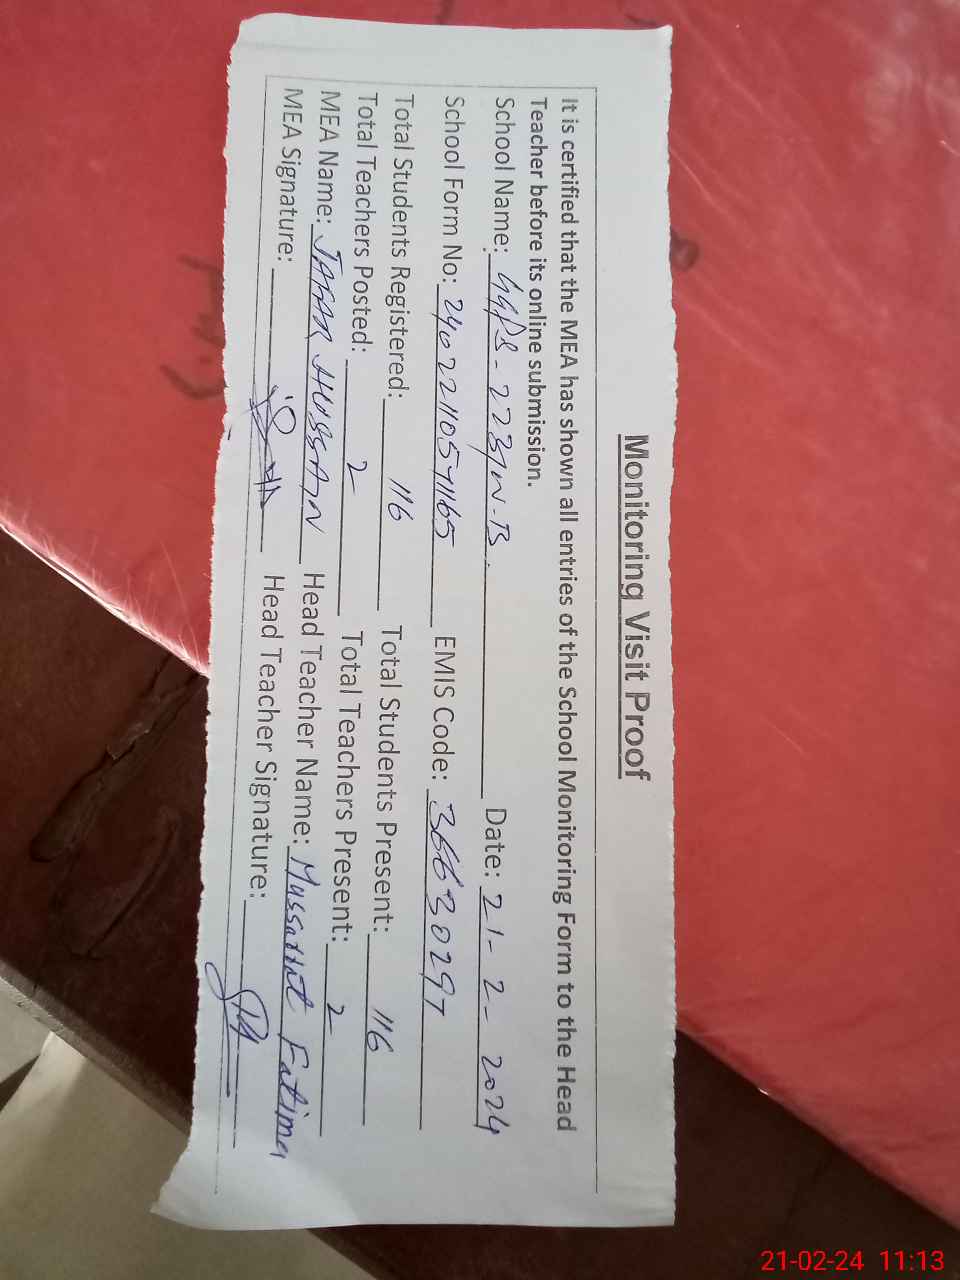 Monitoring Visit Proof
It is certified that the MEA has shown all entries of the School Monitoring Form to the Head
Teacher before its online submission.
School Name: GGPS - 223/W-B. Date: 21-2-2024
School Form No: 24022110571165 EMIS Code: 36630297
Total Students Registered: 116 Total Students Present: 116
Total Teachers Posted: 2 Total Teachers Present: 2
MEA Name: JAFAR HUSSAIN Head Teacher Name: Mussarrat Fatima
MEA Signature: Head Teacher Signature:
21-02-24 11:13